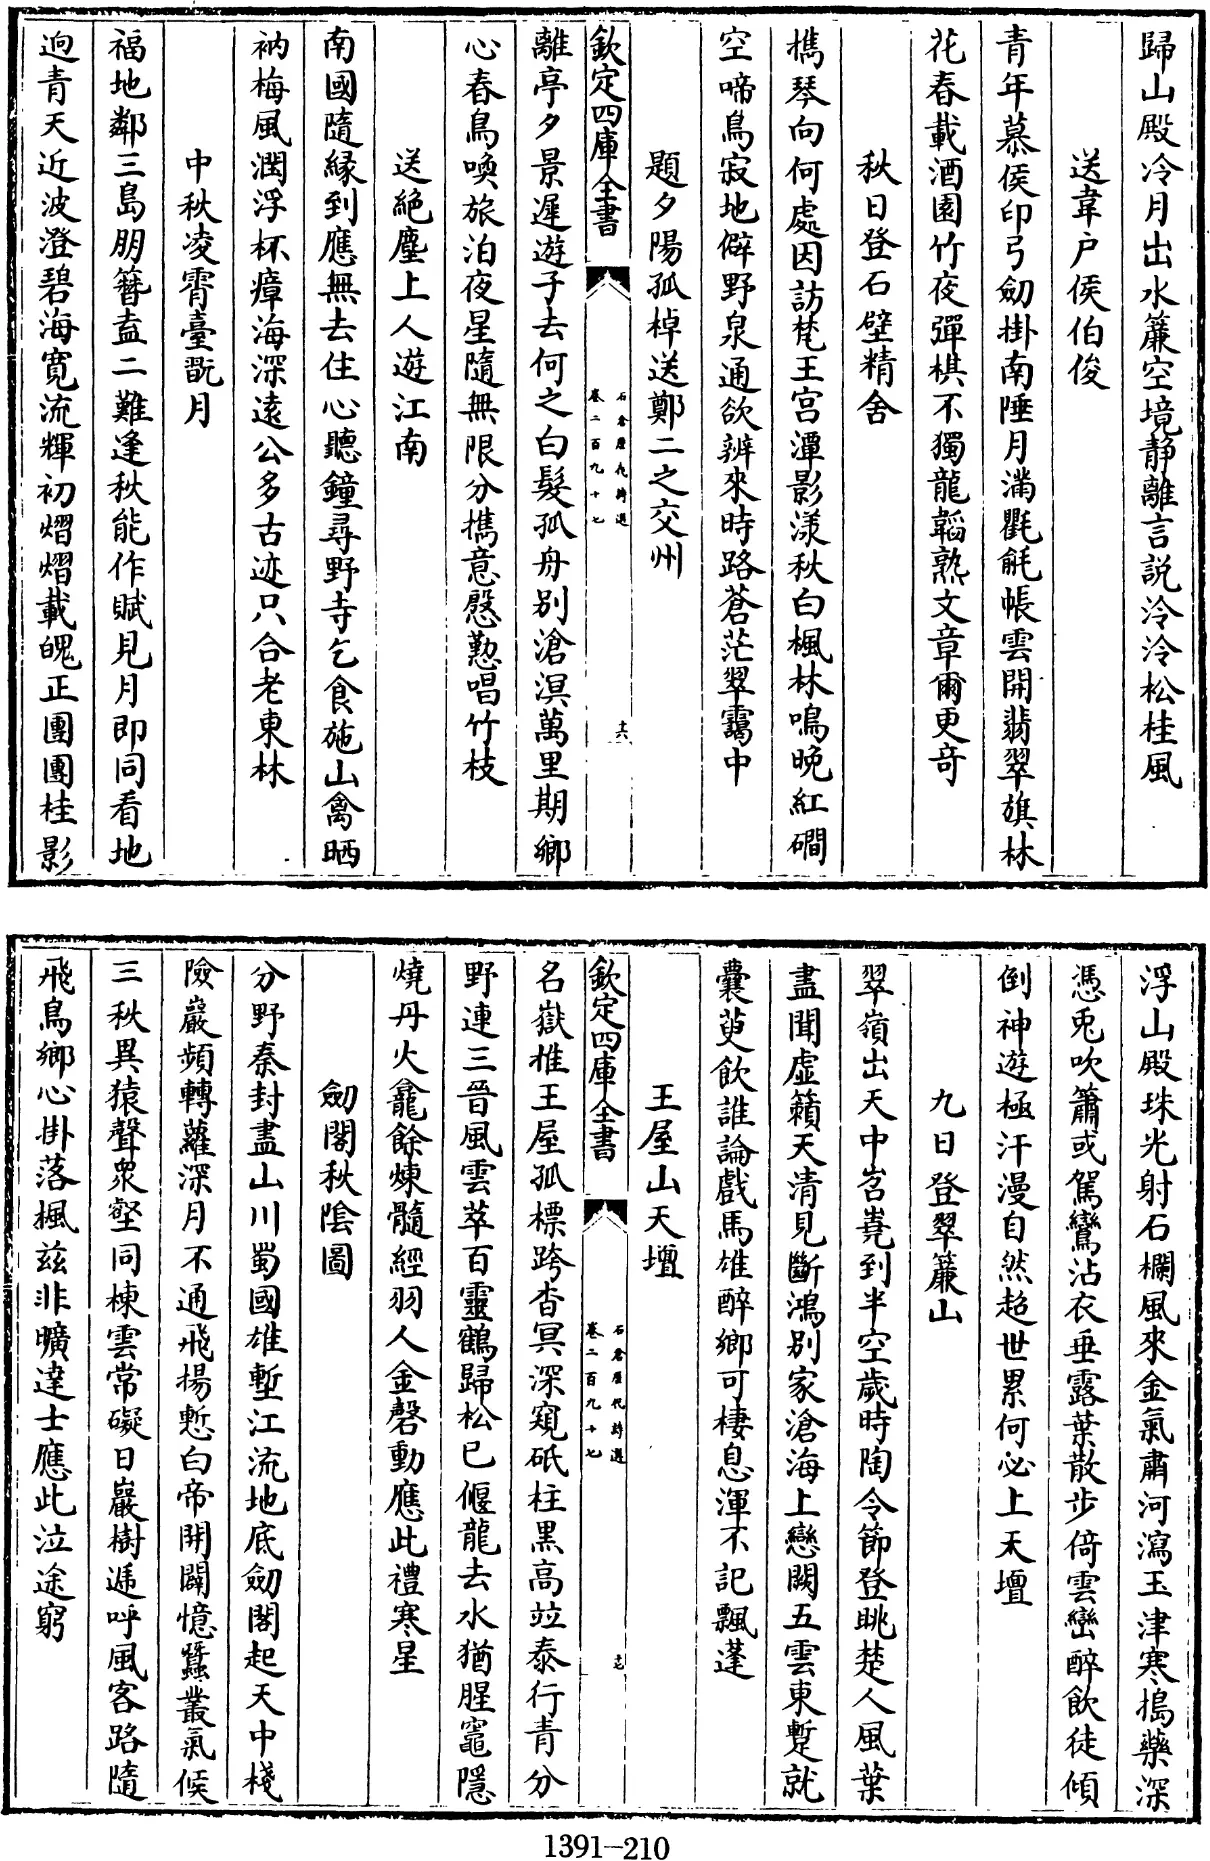 歸山殿冷月出水簾空境静離言説泠泠松桂風
送韋户侯伯俊
青年慕侯印弓劒掛南陲月滿氍毹帳雲開翡翠旗林
花春載酒園竹夜彈棋不獨龍韜熟文章爾更奇
秋日登石壁精舍
携琴向何處因訪梵王宫潭影漾秋白楓林鳴晚紅磵
空啼鳥寂地僻野泉通欲辨來時路蒼茫翠靄中
題夕陽孤棹送鄭二之交州
欽定四庫全書
石倉歴代詩選
卷二百九十七
十六
離亭夕景遲遊子去何之白髮孤舟别滄溟萬里期鄉
心春鳥喚旅泊夜星隨無限分携意慇懃唱竹枝
送絶塵上人遊江南
南國隨緣到應無去住心聽鐘尋野寺乞食施山禽晒
衲梅風潤浮杯瘴海深遠公多古迹只合老東林
中秋凌霄臺翫月
福地鄰三島朋簪盍二難逢秋能作賦見月即同看地
逈青天近波澄碧海寛流輝初熠熠載魄正團團桂影
浮山殿珠光射石欄風來金氣肅河瀉玉津寒搗藥深
憑兎吹簫或駕鸞沾衣垂露葉散步倚雲巒醉飲徒傾
倒神遊極汗漫自然超世累何必上天壇
九日登翠簾山
翠嶺出天中岧嶤到半空歲時陶令節登眺楚人風葉
盡聞虛籟天清見斷鴻别家滄海上戀闕五雲東蹔就
囊萸飲誰論戲馬雄醉鄉可棲息渾不記飄蓬
王屋山天壇
欽定四庫全書
石倉歴代詩選
卷二百九十七
十七
名嶽惟王屋孤標跨杳冥深窺砥柱黑高竝泰行青分
野連三晉風雲萃百靈鶴歸松已偃龍去水猶腥竈隱
燒丹火龕餘煉髓經羽人金磬動應此禮寒星
劒閣秋陰圖
分野秦封盡山川蜀國雄塹江流地底劒閣起天中棧
險巖頻轉蘿深月不通飛揚慙白帝開闢憶蠶叢氣候
三秋異猿聲衆壑同棟雲常礙日巖樹遞呼風客路隨
飛鳥鄉心掛落楓兹非曠達士應此泣途窮
1391-210